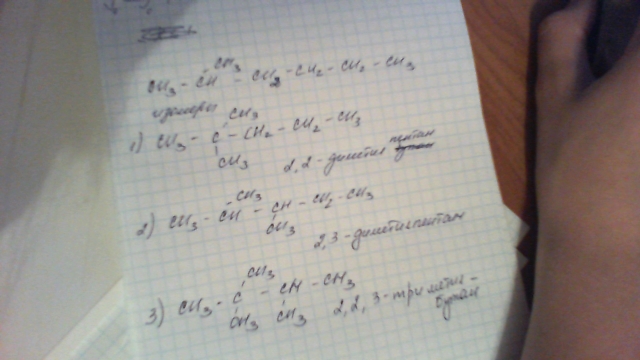 CH3
CH3 - CH - CH2 - CH2 - CH2 - CH3
изомеры
CH3
1) CH3 - C - CH2 - CH2 - CH3
CH3
2,2 - диметил пентан
CH3
2) CH3 - CH - CH - CH2 - CH3
CH3
2,3 - диметилпентан
CH3
3) CH3 - C - CH - CH3
CH3 CH3
2,2,3 - триметил -
бутан